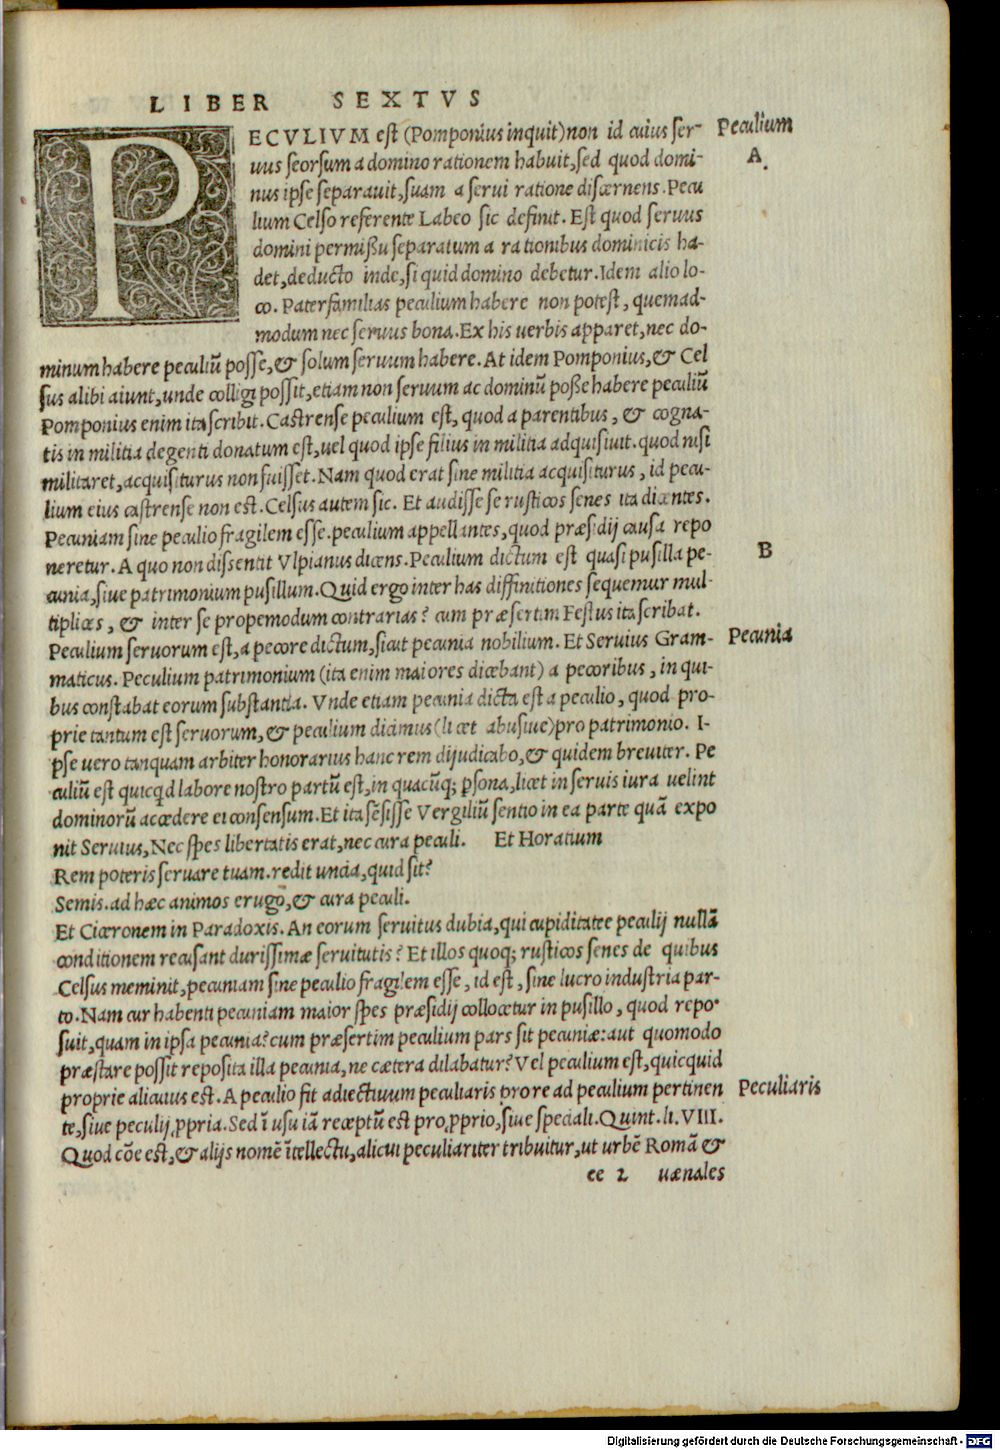 LIBER SEXTVS
PECVLIVM est (Pomponius inquit) non id cuius ser-
uus seorsum a domino rationem habuit, sed quod domi-
nus ipse separauit, suam a serui ratione discernens. Pecu
lium Celso referente Labeo sic definit. Est quod seruus
domini permißu separatum a rationibus dominicis ha-
bet, deducto inde, si quid domino debetur. Idem alio lo-
co. Paterfamilias peculium habere non potest, quemad-
modum nec seruus bona. Ex his uerbis apparet, nec do-
minum habere peculiũ posse, & solum seruum habere. At idem Pomponius, & Cel
sus alibi aiunt, unde colligi possit, etiam non seruum ac dominũ poße habere peculiũ
Pomponius enim ita scribit. Castrense peculium est, quod a parentibus, & cogna-
tis in militia degenti donatum est, uel quod ipse filius in militia adquisiuit. quod nisi
militaret, acquisiturus non fuisset. Nam quod erat sine militia acquisiturus, id pecu-
lium eius castrense non est. Celsus autem sic. Et audisse se rusticos senes ita dicentes.
Pecuniam sine peculio fragilem esse. peculium appellantes, quod præsidij causa repo
neretur. A quo non dissentit Vlpianus dicens. Peculium dictum est quasi pusilla pe-
cunia, siue patrimonium pusillum. Quid ergo inter has diffinitiones sequemur mul-
tiplices, & inter se propemodum contrarias? cum præsertim Festus ita scribat.
Peculium seruorum est, a pecore dictum, sicut pecunia nobilium. Et Seruius Gram-
maticus. Peculium patrimonium (ita enim maiores dicebant) a pecoribus, in qui-
bus constabat eorum substantia. Vnde etiam pecunia dicta est a peculio, quod pro-
prie tantum est seruorum, & peculium dicimus (licet abusiue) pro patrimonio. I-
pse uero tanquam arbiter honorarius hanc rem dijudicabo, & quidem breuiter. Pe
culiũ est quicqd labore nostro partũ est, in quacũq; psona, licet in seruis iura uelint
dominorũ accedere ei consensum. Et ita sẽsisse Vergiliũ sentio in ea parte quã expo
nit Seruius, Nec spes libertatis erat, nec cura peculi. Et Horatium
Rem poteris seruare tuam. redit uncia, quid sit?
Semis. ad hæc animos erugo, & cura peculi.
Et Ciceronem in Paradoxis. An eorum seruitus dubia, qui cupiditate peculij nullã
conditionem recusant durissimæ seruitutis? Et illos quoq; rusticos senes de quibus
Celsus meminit, pecuniam sine peculio fragilem esse, id est, sine lucro industria par-
to. Nam cur habenti pecuniam maior spes præsidij collocetur in pusillo, quod repo-
suit, quam in ipsa pecunia? cum præsertim peculium pars sit pecuniæ: aut quomodo
præstare possit reposita illa pecunia, ne cætera dilabatur? Vel peculium est, quicquid
proprie alicuius est. A peculio fit adiectiuum peculiaris pro re ad peculium pertinen
te, siue peculij ꝓpria. Sed ĩ usu iã receptũ est pro ꝓprio, siue speciali. Quint. li. VIII.
Quod cõe est, & alijs nomẽ ĩtellectu, alicui peculiariter tribuitur, ut urbẽ Romã &
ee 2 uænales
Peculium
A
B
Pecunia
Peculiaris
Digitalisierung gefördert durch die Deutsche Forschungsgemeinschaft - DFG